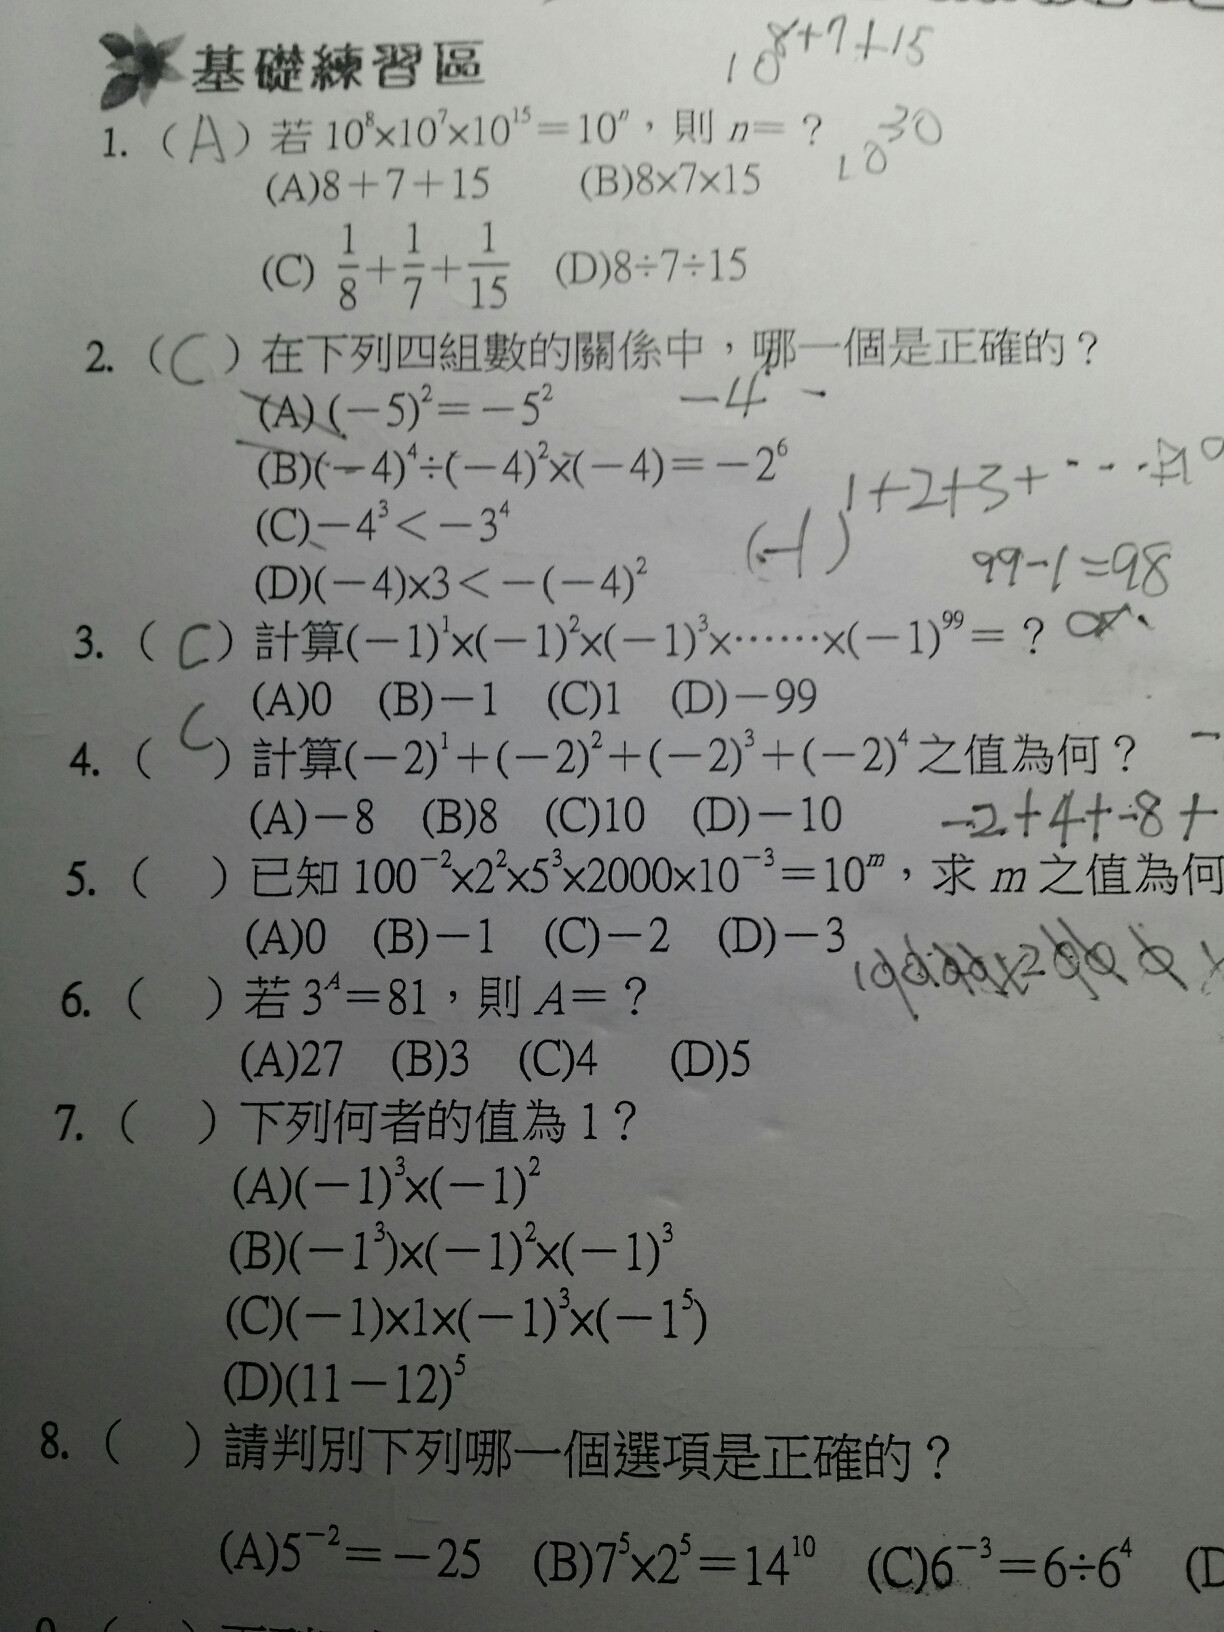 基礎練習區
10⁸⁺⁷⁺¹⁵
1. (A) 若 10⁸×10⁷×10¹⁵=10ⁿ，則 n=？ 10³⁰
(A)8+7+15 (B)8×7×15
(C) 1/8+1/7+1/15 (D)8÷7÷15
2. (C) 在下列四組數的關係中，哪一個是正確的？
(A)(−5)²=−5² −4 -
(B)(−4)⁴÷(−4)²×(−4)=−2⁶
1+2+3+
(C)−4³<−3⁴ (-1)
99-1=98
(D)(−4)×3<−(−4)²
3. (C) 計算(−1)¹×(−1)²×(−1)³×⋯⋯×(−1)⁹⁹=？
(A)0 (B)−1 (C)1 (D)−99
4. (C) 計算(−2)¹+(−2)²+(−2)³+(−2)⁴之值為何？
(A)−8 (B)8 (C)10 (D)−10 -2+4+-8+
5. ( ) 已知 100⁻²×2²×5³×2000×10⁻³=10ᵐ，求 m 之值為何
(A)0 (B)−1 (C)−2 (D)−3
6. ( ) 若 3ᴬ=81，則 A=？
(A)27 (B)3 (C)4 (D)5
7. ( ) 下列何者的值為 1？
(A)(−1)³×(−1)²
(B)(−1³)×(−1)²×(−1)³
(C)(−1)×1×(−1)³×(−1⁵)
(D)(11−12)⁵
8. ( ) 請判別下列哪一個選項是正確的？
(A)5⁻²=−25 (B)7⁵×2⁵=14¹⁰ (C)6⁻³=6÷6⁴ (D